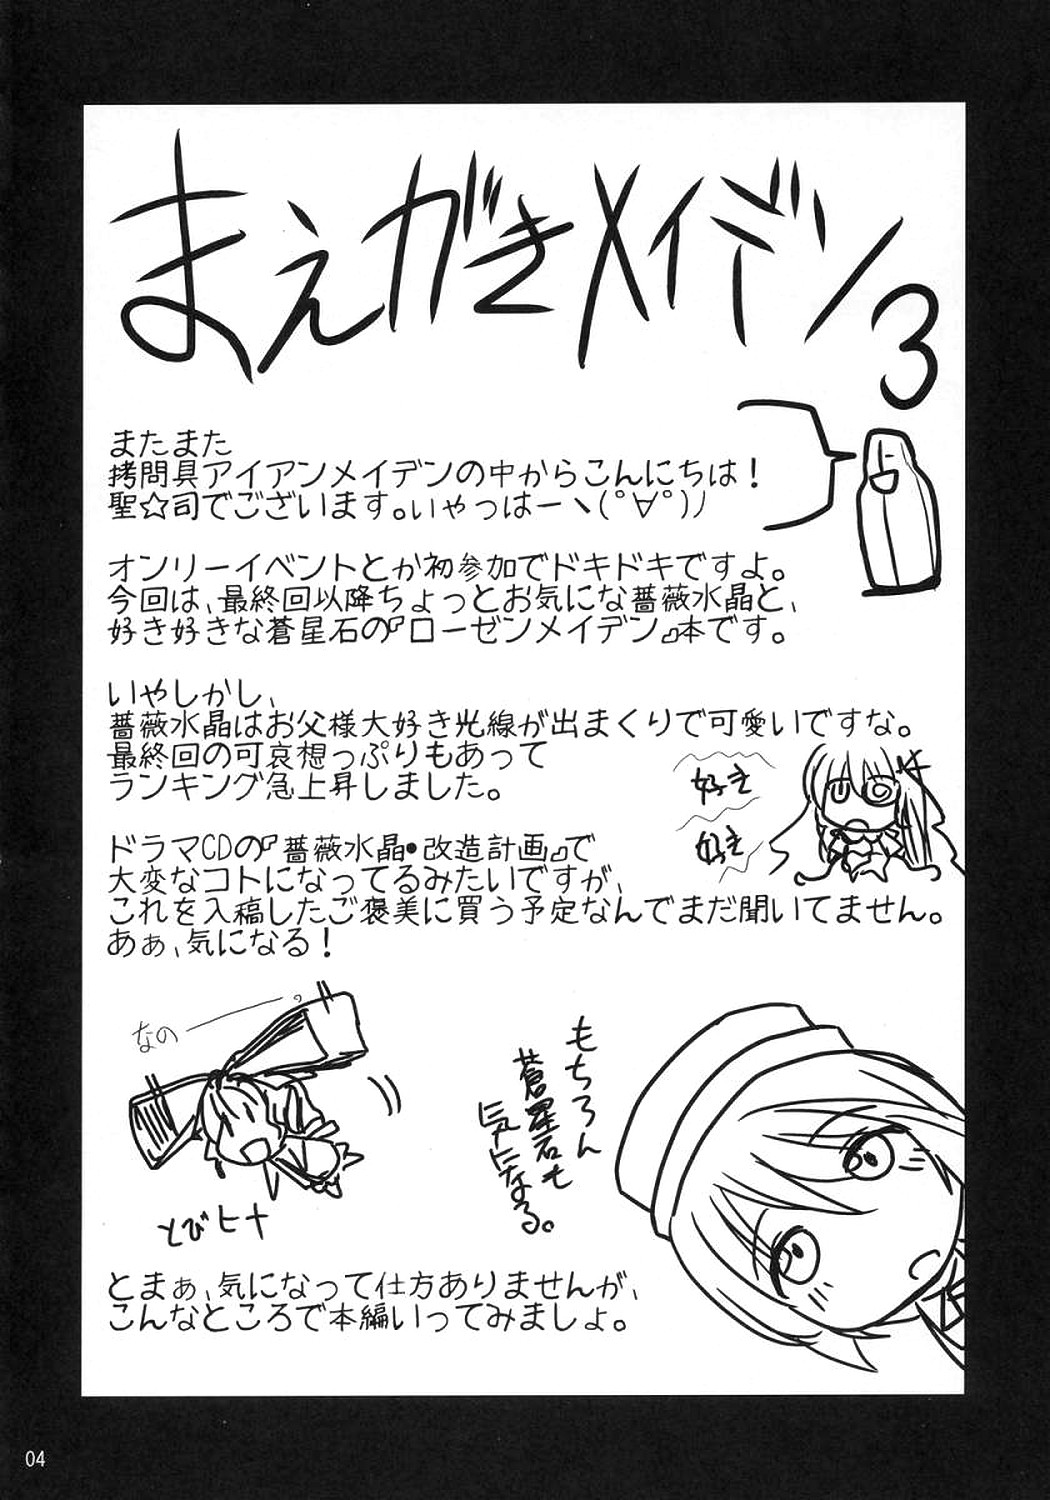 まえがきメイデン3
またまた
拷問具アイアンメイデンの中からこんにちは！
聖☆司でございます。いやっはーヽ(ﾟ∀ﾟ)ﾉ
オンリーイベントとか初参加でドキドキですよ。
今回は、最終回以降ちょっとお気にな薔薇水晶と、
好き好きな蒼星石の『ローゼンメイデン』本です。
いやしかし、
薔薇水晶はお父様大好き光線が出まくりで可愛いですな。
最終回の可哀想っぷりもあって
ランキング急上昇しました。
好き
好き
ドラマCDの『薔薇水晶・改造計画』で
大変なコトになってるみたいですが、
これを入稿したご褒美に買う予定なんでまだ聞いてません。
あぁ、気になる！
なのーっ
とびヒナ
もちろん
蒼星石も
気になる。
とまぁ、気になって仕方ありませんが、
こんなところで本編いってみましょ。
04